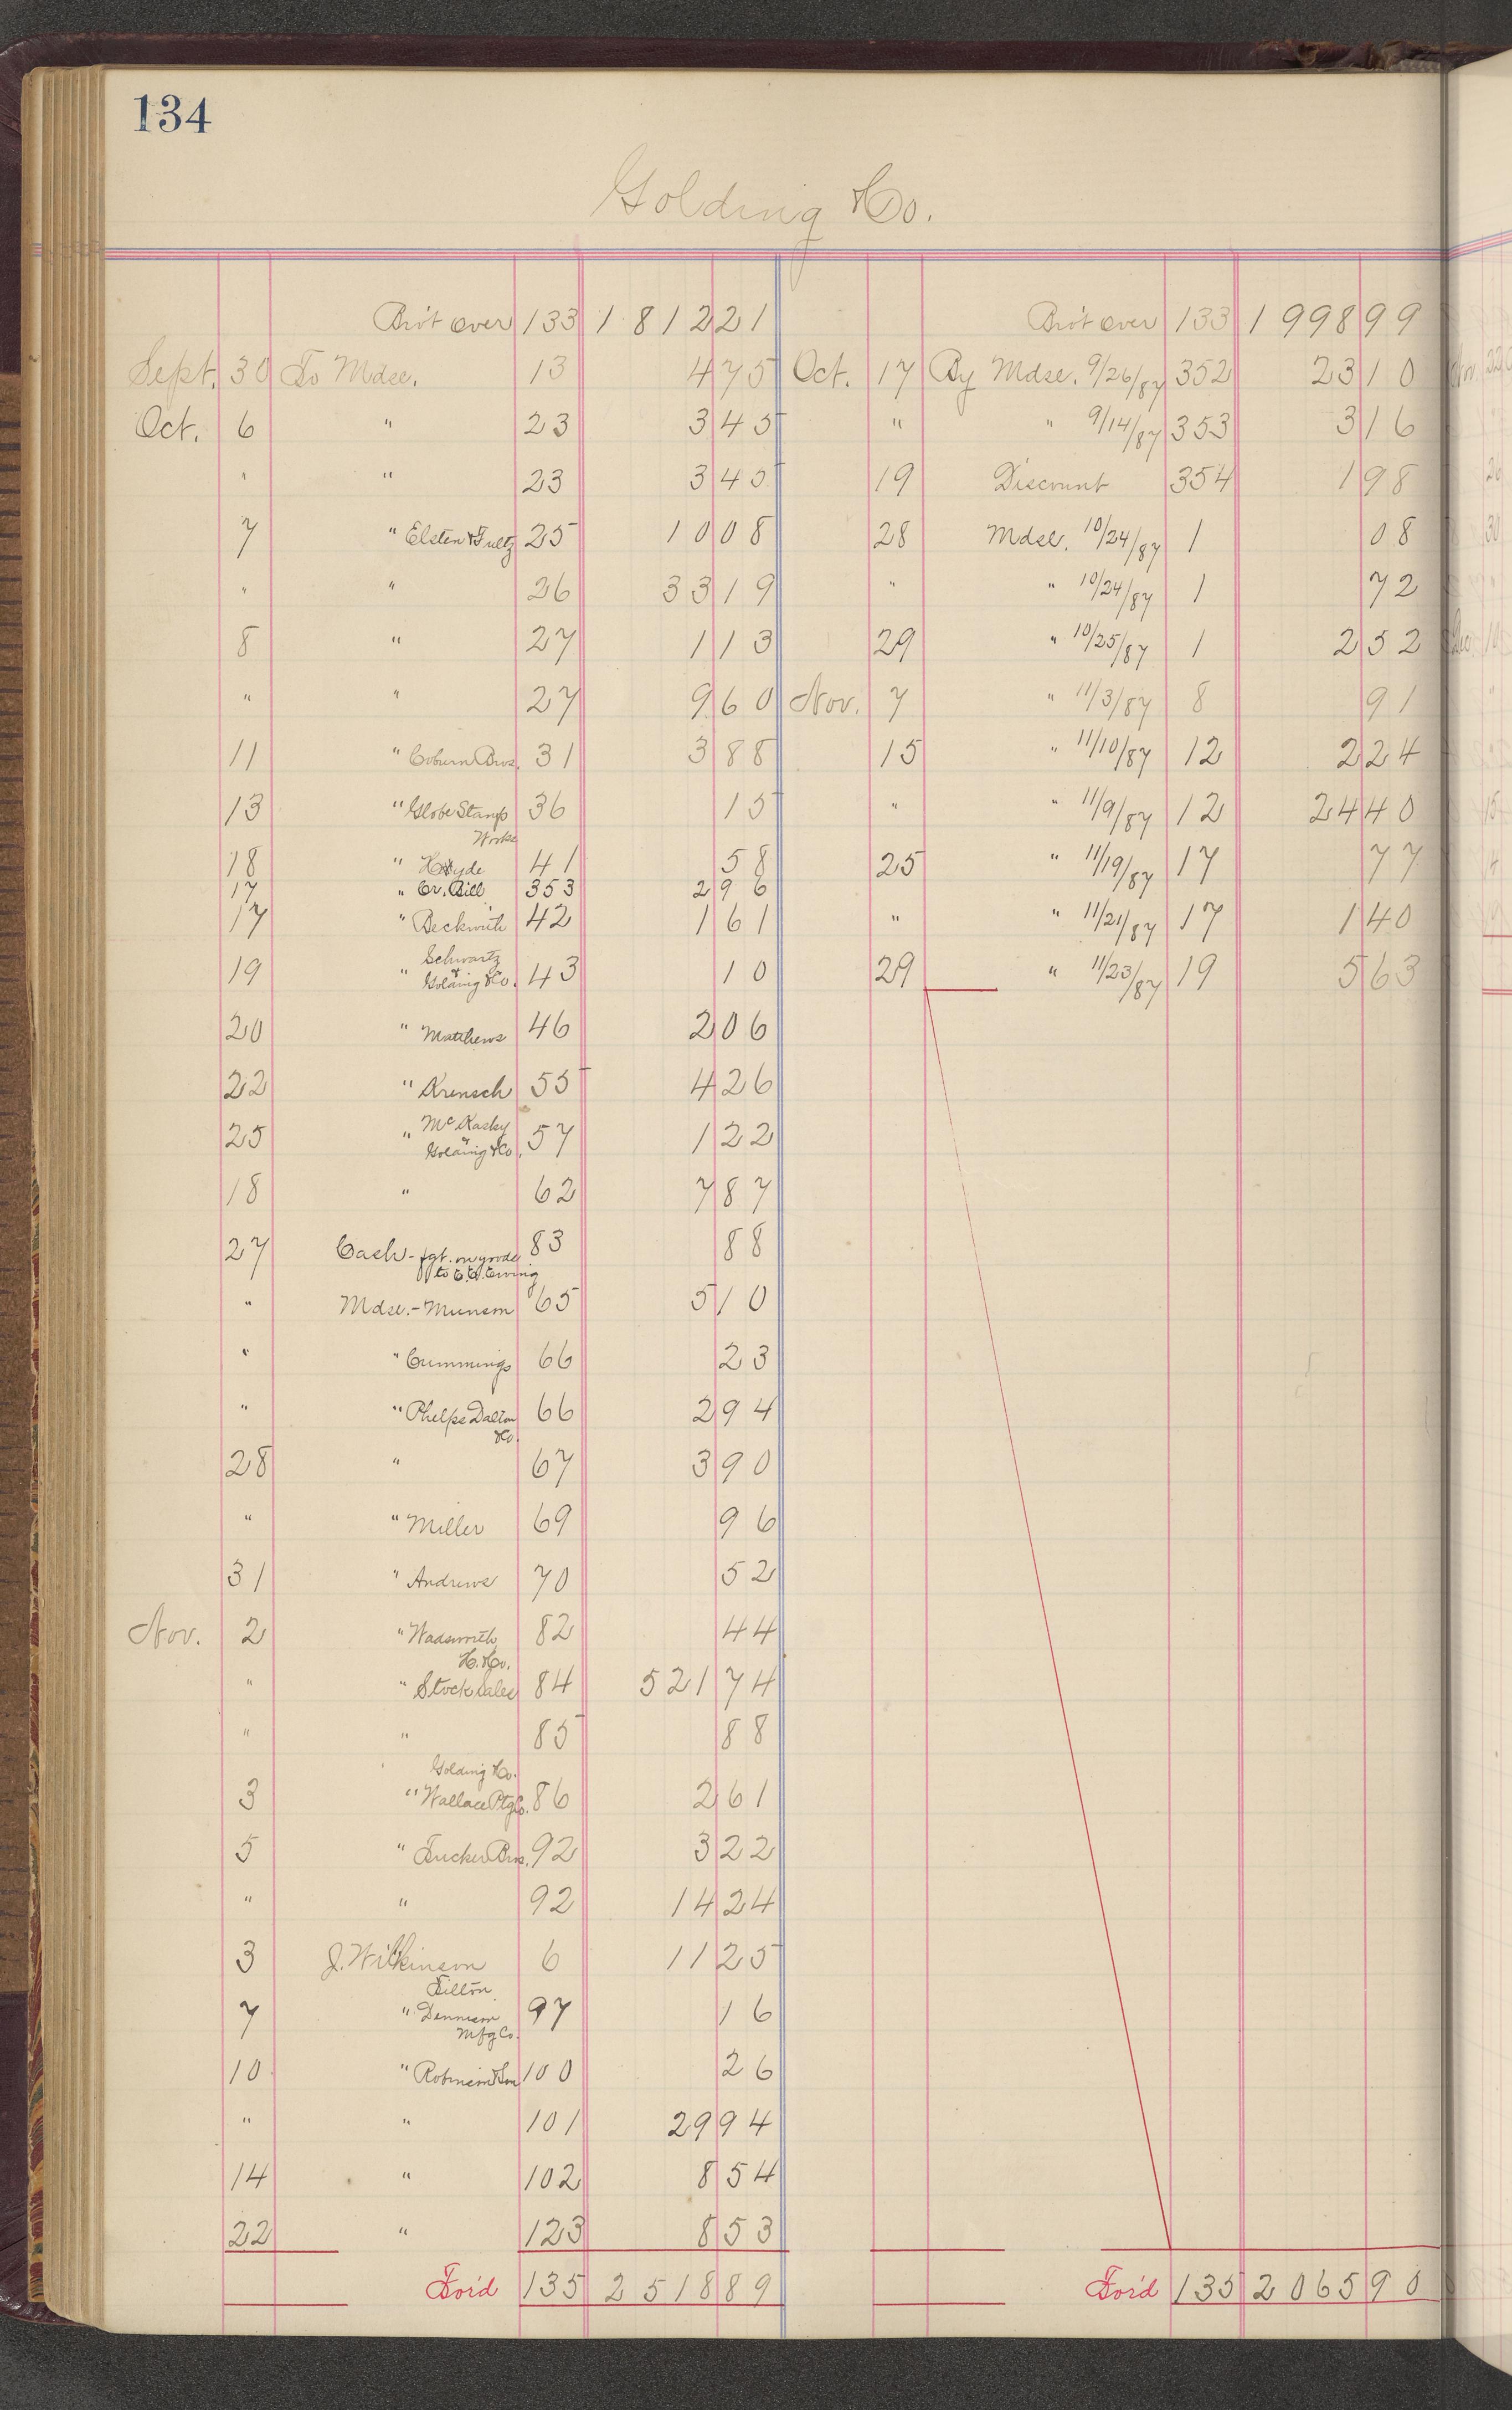 134
Golding & Co.
Bro't over 133 1 812 21 Bro't over 133 1 998 99
Sept. 30 To Mdse. 13 4 75 Oct. 17 By Mdse. 9/26/87 352 23 10
Oct. 6 " 23 3 45 " " 9/14/87 353 3 16
" " 23 3 45 19 Discount 354 1 98
7 " Elsten & Fultz 25 10 08 28 Mdse. 10/24/87 1 08
" " 26 33 19 " " 10/24/87 1 72
8 " 27 1 13 29 " 10/25/87 1 2 52
" " 27 9 60 Nov. 7 " 11/3/87 8 91
11 " Coburn Bros. 31 3 88 15 " 11/10/87 12 2 24
13 " Globe Stamp 36 15 " " 11/9/87 12 24 40
Works
18 " Hyde 41 58 25 " 11/19/87 17 77
17 " Cr. Bill 353 2 96
17 " Beckwith 42 1 61 " " 11/21/87 17 1 40
Schwartz
19 " Golding & Co. 43 10 29 " 11/23/87 19 5 63
20 " Matthews 46 2 06
22 " Krensch 55 4 26
McKasky
25 " Golding & Co. 57 1 22
18 " 62 7 87
27 Cash - fgt. on goods 83 88
to Ewing
" Mdse. - Munson 65 5 10
" " Cummings 66 23
" " Phelps Dalton 66 2 94
& Co.
28 " 67 3 90
" " Miller 69 96
31 " Andrews 70 52
Nov. 2 " Wadsworth 82 44
H. & Co.
" " Stock Sales 84 521 74
" " 85 88
Golding & Co.
3 " Wallace Ptg Co. 86 2 61
5 " Tucker Bros. 92 3 22
" " 92 14 24
3 J. Wilkinson 6 11 25
Tilton
7 " Dennison 97 16
Mfg Co.
10 " Robinson & Son 100 26
" " 101 29 94
14 " 102 8 54
22 " 123 8 53
For'd 135 2 518 89 For'd 135 2 065 90